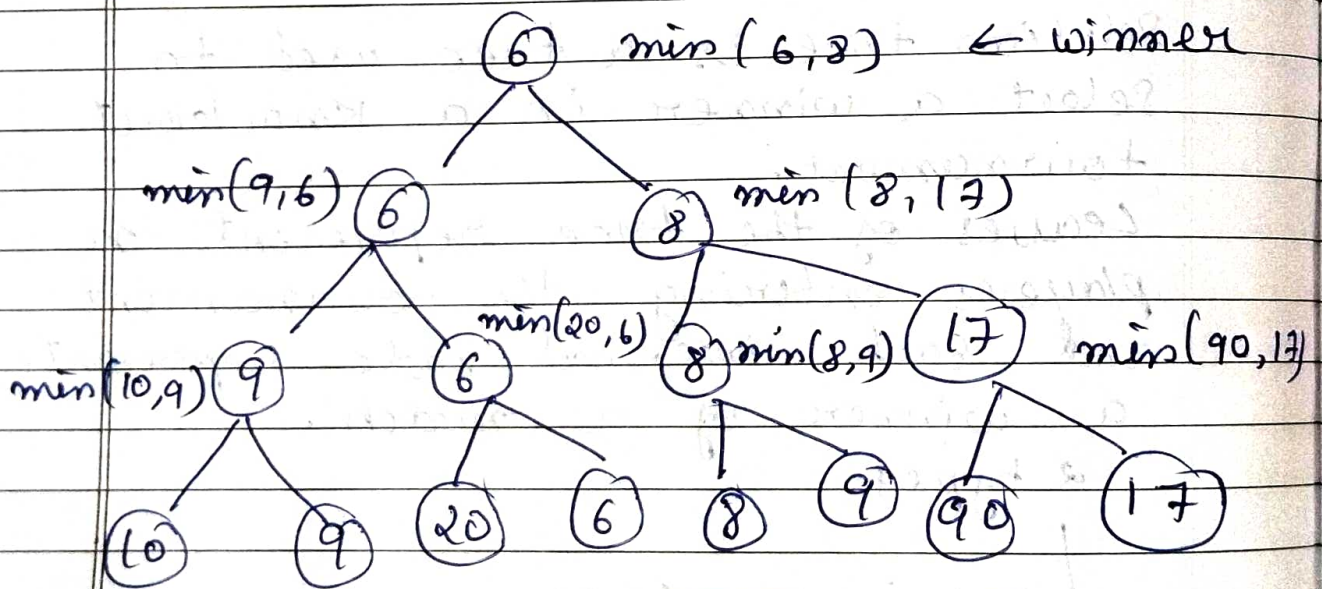 6 min (6,8) ← winner
min(9,6) 6 8 min (8,17)
min(10,9) 9 6 min(20,6) 8 min(8,9) 17 min(90,17)
10 9 20 6 8 9 90 17